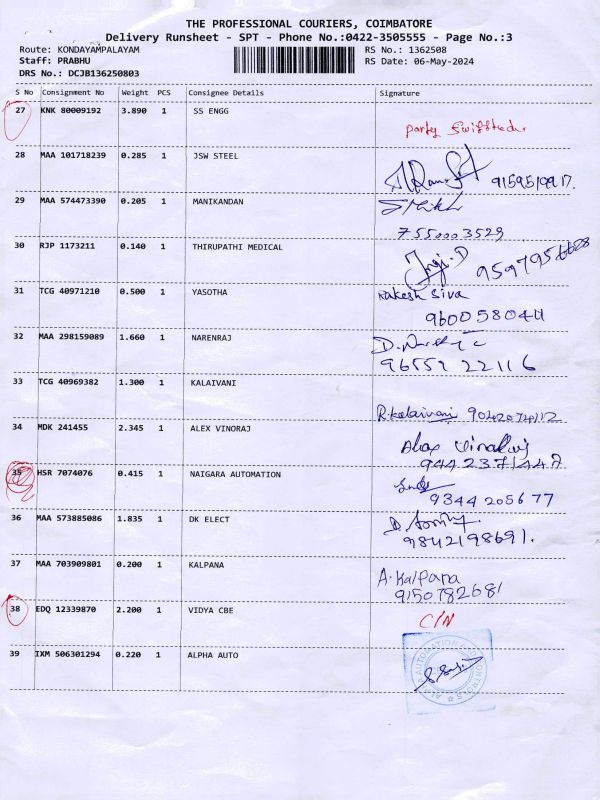 THE PROFESSIONAL COURIERS, COIMBATORE
Delivery Runsheet - SPT - Phone No.:0422-3505555 - Page No.:3
Route: KONDAYAMPALAYAM RS No.: 1362508
Staff: PRABHU RS Date: 06-May-2024
DRS No.: DCJB136250803
S No Consignment No Weight PCS Consignee Details Signature
27 KNK 80009192 3.890 1 SS ENGG
Party
28 MAA 101718239 0.285 1 JSW STEEL
9159519917.
29 MAA 574473390 0.205 1 MANIKANDAN
7550003529
30 RJP 1173211 0.140 1 THIRUPATHI MEDICAL
9597956628
31 TCG 40971210 0.500 1 YASOTHA Rakesh Siva
9600580411
32 MAA 298159089 1.660 1 NARENRAJ
96559 22116
33 TCG 40969382 1.300 1 KALAIVANI
R.Kalaivani 9042074112
34 MDK 241455 2.345 1 ALEX VINORAJ Alex Vinoraj
9442371447
35 HSR 7074076 0.415 1 NAIGARA AUTOMATION
9344205677
36 MAA 573885086 1.835 1 DK ELECT
9842198691.
37 MAA 703909801 0.200 1 KALPANA A.Kalpana
9150782681
38 EDQ 12339870 2.200 1 VIDYA CBE C/N
39 IXM 506301294 0.220 1 ALPHA AUTO